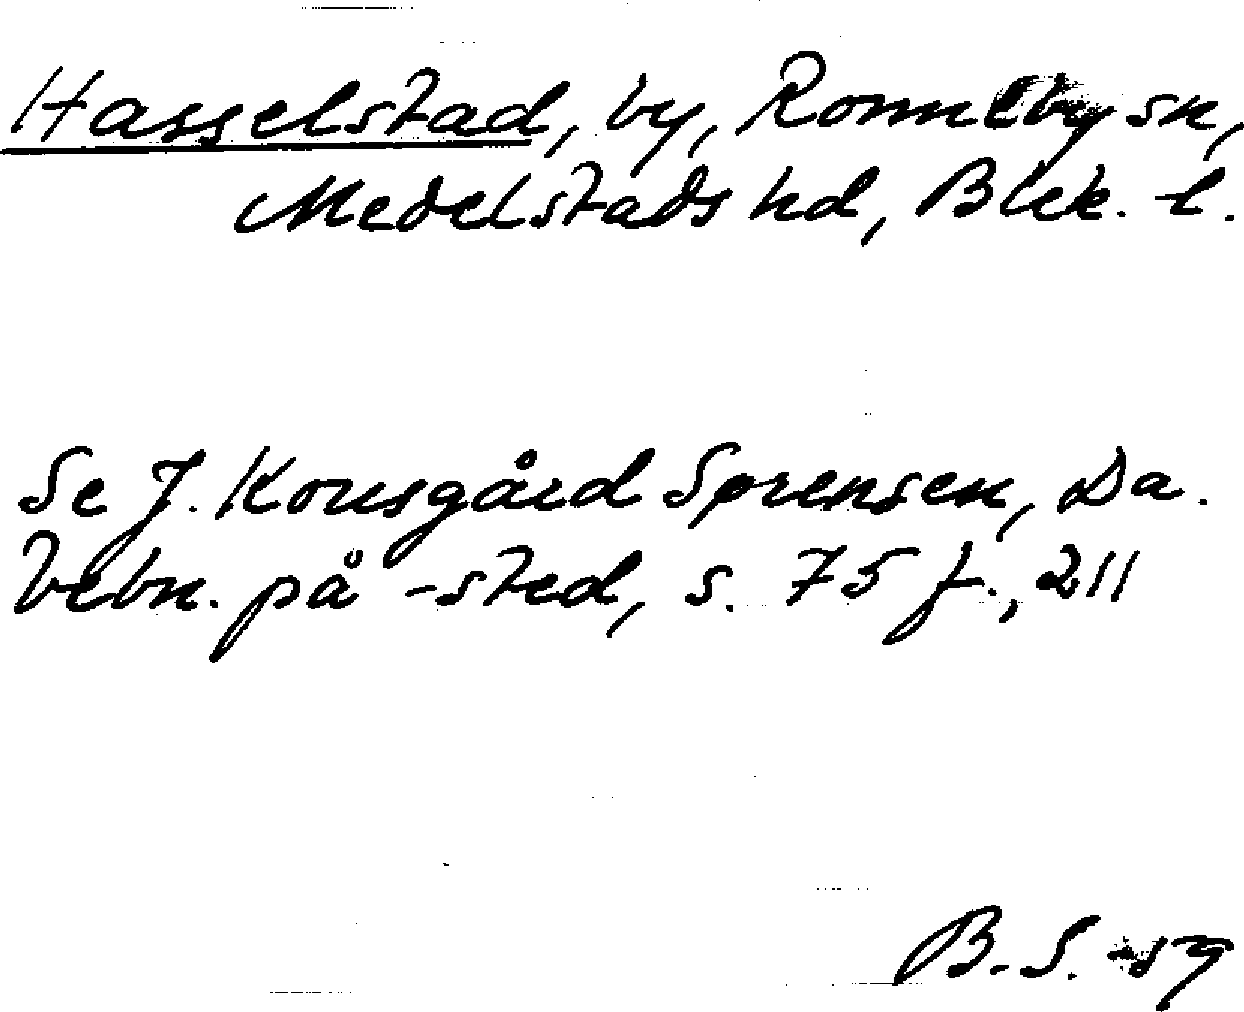 Hasselstad, by, Ronneby sn,
Medelstads hd, Blek. l.
Se J. Kousgård Sørensen, Da.
bebn. på -sted, s. 75 f., 211
B. S.